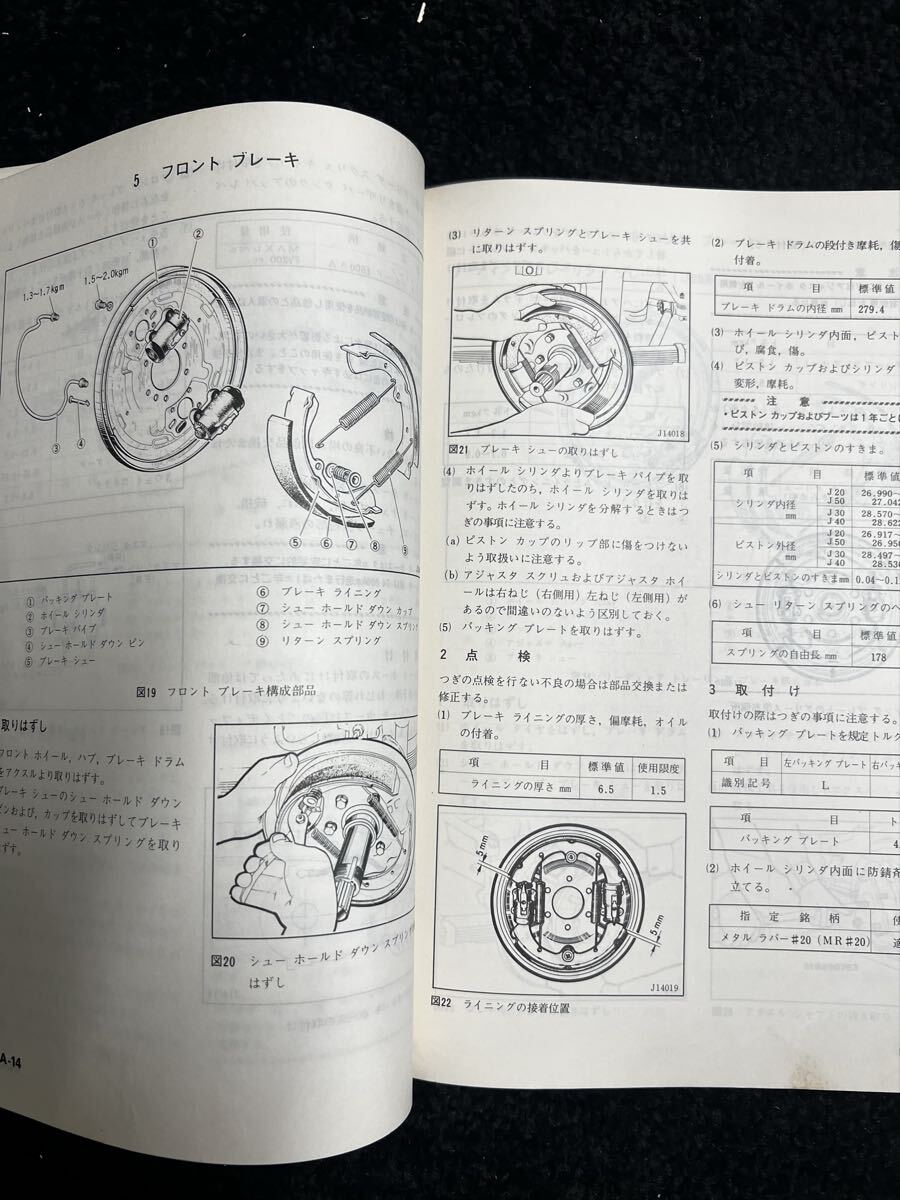 5 フロント ブレーキ
①
②
1.3~1.7kgm
1.5~2.0kgm
③
④
⑤
⑥
⑦
⑧
⑨
① バッキング プレート
② ホイール シリンダ
③ ブレーキ パイプ
④ シュー ホールド ダウン ピン
⑤ ブレーキ シュー
⑥ ブレーキ ライニング
⑦ シュー ホールド ダウン カップ
⑧ シュー ホールド ダウン スプリング
⑨ リターン スプリング
図19 フロント ブレーキ構成部品
取りはずし
フロント ホイール, ハブ, ブレーキ ドラム
をアクスルより取りはずす。
ブレーキ シューのシュー ホールド ダウン
ピンおよび, カップを取りはずしてブレーキ
シュー ホールド ダウン スプリングを取り
はずす。
図20 シュー ホールド ダウン スプリング
はずし
A-14
(3) リターン スプリングとブレーキ シューを共
に取りはずす。
J14018
図21 ブレーキ シューの取りはずし
(4) ホイール シリンダよりブレーキ パイプを取
りはずしたのち, ホイール シリンダを取りは
ずす。ホイール シリンダを分解するときはつ
ぎの事項に注意する。
(a) ピストン カップのリップ部に傷をつけない
よう取扱いに注意する。
(b) アジャスタ スクリュおよびアジャスタ ホイ
ールは右ねじ(右側用)左ねじ(左側用)が
あるので間違いのないよう区別しておく。
(5) バッキング プレートを取りはずす。
2 点 検
つぎの点検を行ない不良の場合は部品交換または
修正する。
(1) ブレーキ ライニングの厚さ, 偏摩耗, オイル
の付着。
項 目 標準値 使用限度
ライニングの厚さ mm 6.5 1.5
5mm
5mm
J14019
図22 ライニングの接着位置
(2) ブレーキ ドラムの段付き摩耗, 傷
付着。
項 目 標準値
ブレーキ ドラムの内径 mm 279.4
(3) ホイール シリンダ内面, ピスト
び, 腐食, 傷。
(4) ピストン カップおよびシリンダ
変形, 摩耗。
注 意
・ピストン カップおよびブーツは1年ごとに
(5) シリンダとピストンのすきま。
項 目 標準値
シリンダ内径 mm J20 J50 26.990~ 27.042
J30 J40 28.570~ 28.622
ピストン外径 mm J20 J50 26.917~ 26.950
J30 J40 28.497~ 28.530
シリンダとピストンのすきま mm 0.04~0.1
(6) シュー リターン スプリングのへ
項 目 標準値
スプリングの自由長 mm 178
3 取付け
取付けの際はつぎの事項に注意する。
(1) バッキング プレートを規定トルク
項 目 左バッキング プレート 右バッキ
識別記号 L
項 目 ト
バッキング プレート 4
(2) ホイール シリンダ内面に防錆剤
立てる。
指定銘柄 使
メタル ラバー#20(MR#20) 適